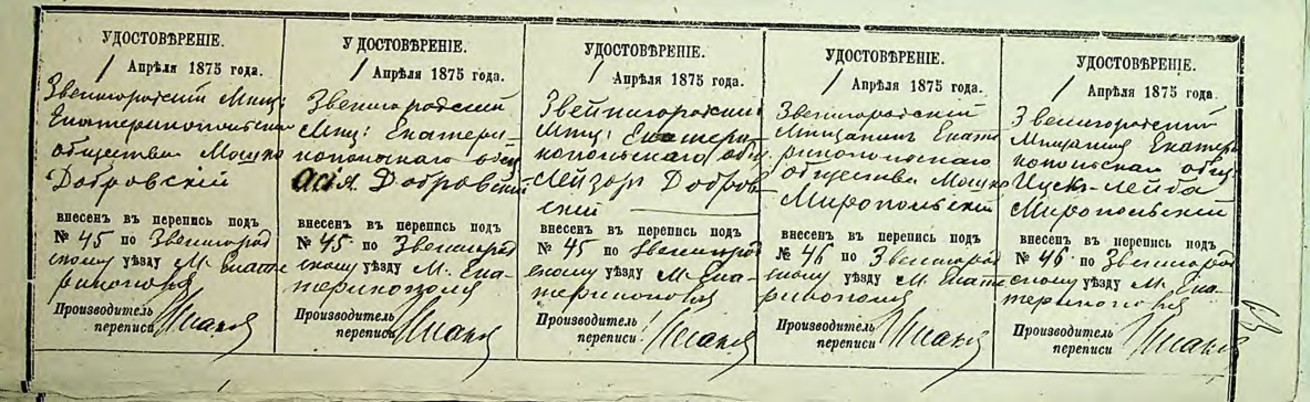 УДОСТОВѢРЕНІЕ.
1 Апрѣля 1875 года.
Звенигородскій Мѣщ:
Екатеринопольскаго
общества Мошко
Добровскій
внесенъ въ перепись подъ
№ 45 по Звенигород
скому уѣзду М. Екате
ринополя
Производитель
переписи
УДОСТОВѢРЕНІЕ.
1 Апрѣля 1875 года.
Звенигородскій
Мѣщ: Екатери-
нопольскаго общ
Асія Добровскій
внесенъ въ перепись подъ
№ 45 по Звенигород
скому уѣзду М. Ека-
теринополя
Производитель
переписи
УДОСТОВѢРЕНІЕ.
1 Апрѣля 1875 года.
Звейнигородскій
Мѣщ: Екатери
нопольскаго общ
Лейзоръ Добров
скій
внесенъ въ перепись подъ
№ 45 по Звенигород
скому уѣзду М. Ека-
теринополя
Производитель
переписи
УДОСТОВѢРЕНІЕ.
1 Апрѣля 1875 года.
Звенигородскій
Мищанинъ Екате
ринопольскаго
общества Мошко
Миропольскій
внесенъ въ перепись подъ
№ 46 по Звенигород
скому уѣзду М. Екате
ринополя
Производитель
переписи
УДОСТОВѢРЕНІЕ.
1 Апрѣля 1875 года.
Звенигородскій
Мищанинъ Екатери
нопольскаго общ:
Ицекъ-Лейба
Миропольскій
внесенъ въ перепись подъ
№ 46 по Звенигород
скому уѣзду М. Ека-
теринополя
Производитель
переписи